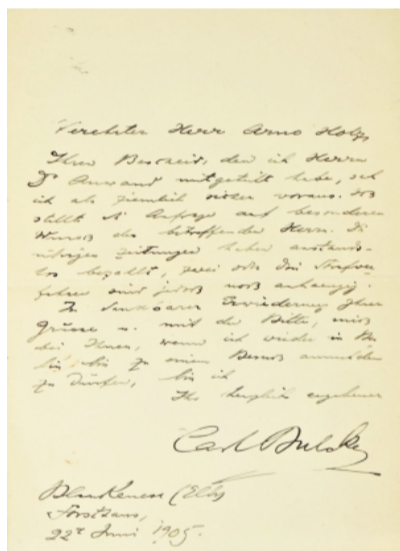 Verehrter Herr Arno Holz,
Ihren Bescheid, den ich Herrn
Dr mitgeteilt habe, sah
ich als ziemlich sicher voraus. Ich
stellte die Anfrage auf besonderen
Wunsch des betreffenden Herrn. Die
übrigen Zeitungen haben anstands-
los bezahlt, zwei oder drei Strafver-
fahren sind jedoch noch anhängig.
In dankbarer Erwiderung Ihrer
Grüsse u. mit der Bitte, mich
bei Ihnen, wenn ich wieder in Ber-
lin bin zu einem Besuch anmelden
zu dürfen, bin ich
Ihr herzlich ergebener
Carl
Blankenese (Elbe)
Forsthaus,
22t Juni 1905.